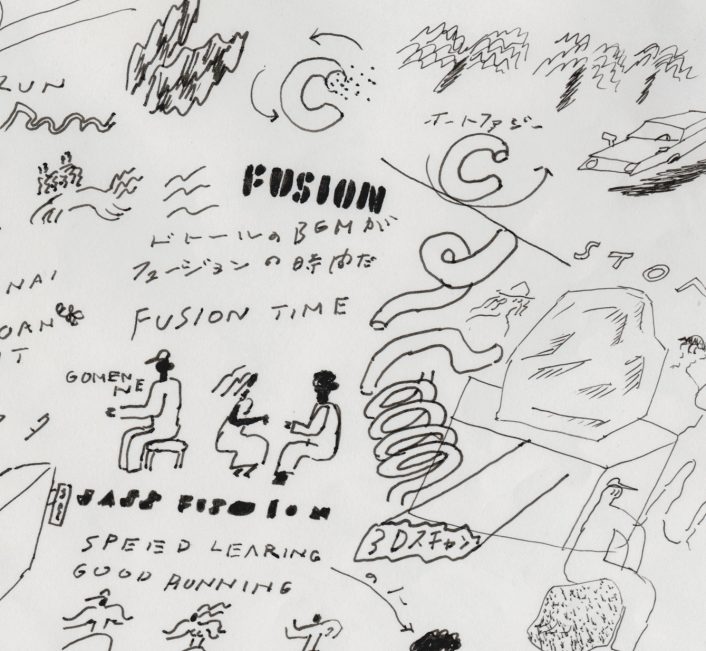 ZUN
オートファジー
FUSION
ドトールのBGMが
フュージョンの時間だ
STO
NAI
OAN
IT
FUSION TIME
GOMEN
NE
JASS FUSION
SPEED LEARING
GOOD RUNNING
3Dスキャン
のに